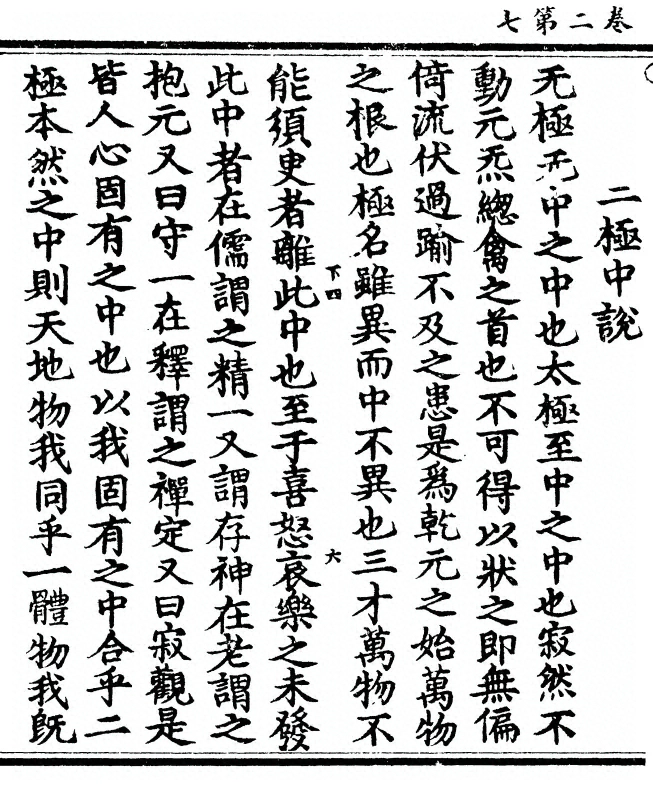 卷二第七
二極中說
无極无中之中也太極至中之中也寂然不
動元炁總禽之首也不可得以狀之即無偏
倚流伏過踰不及之患是爲乾元之始萬物
之根也極名雖異而中不異也三才萬物不
能須臾者離此中也至于喜怒哀樂之未發
此中者在儒謂之精一又謂存神在老謂之
抱元又曰守一在釋謂之禪定又曰寂觀是
皆人心固有之中也以我固有之中合乎二
極本然之中則天地物我同乎一體物我旣
下四
六